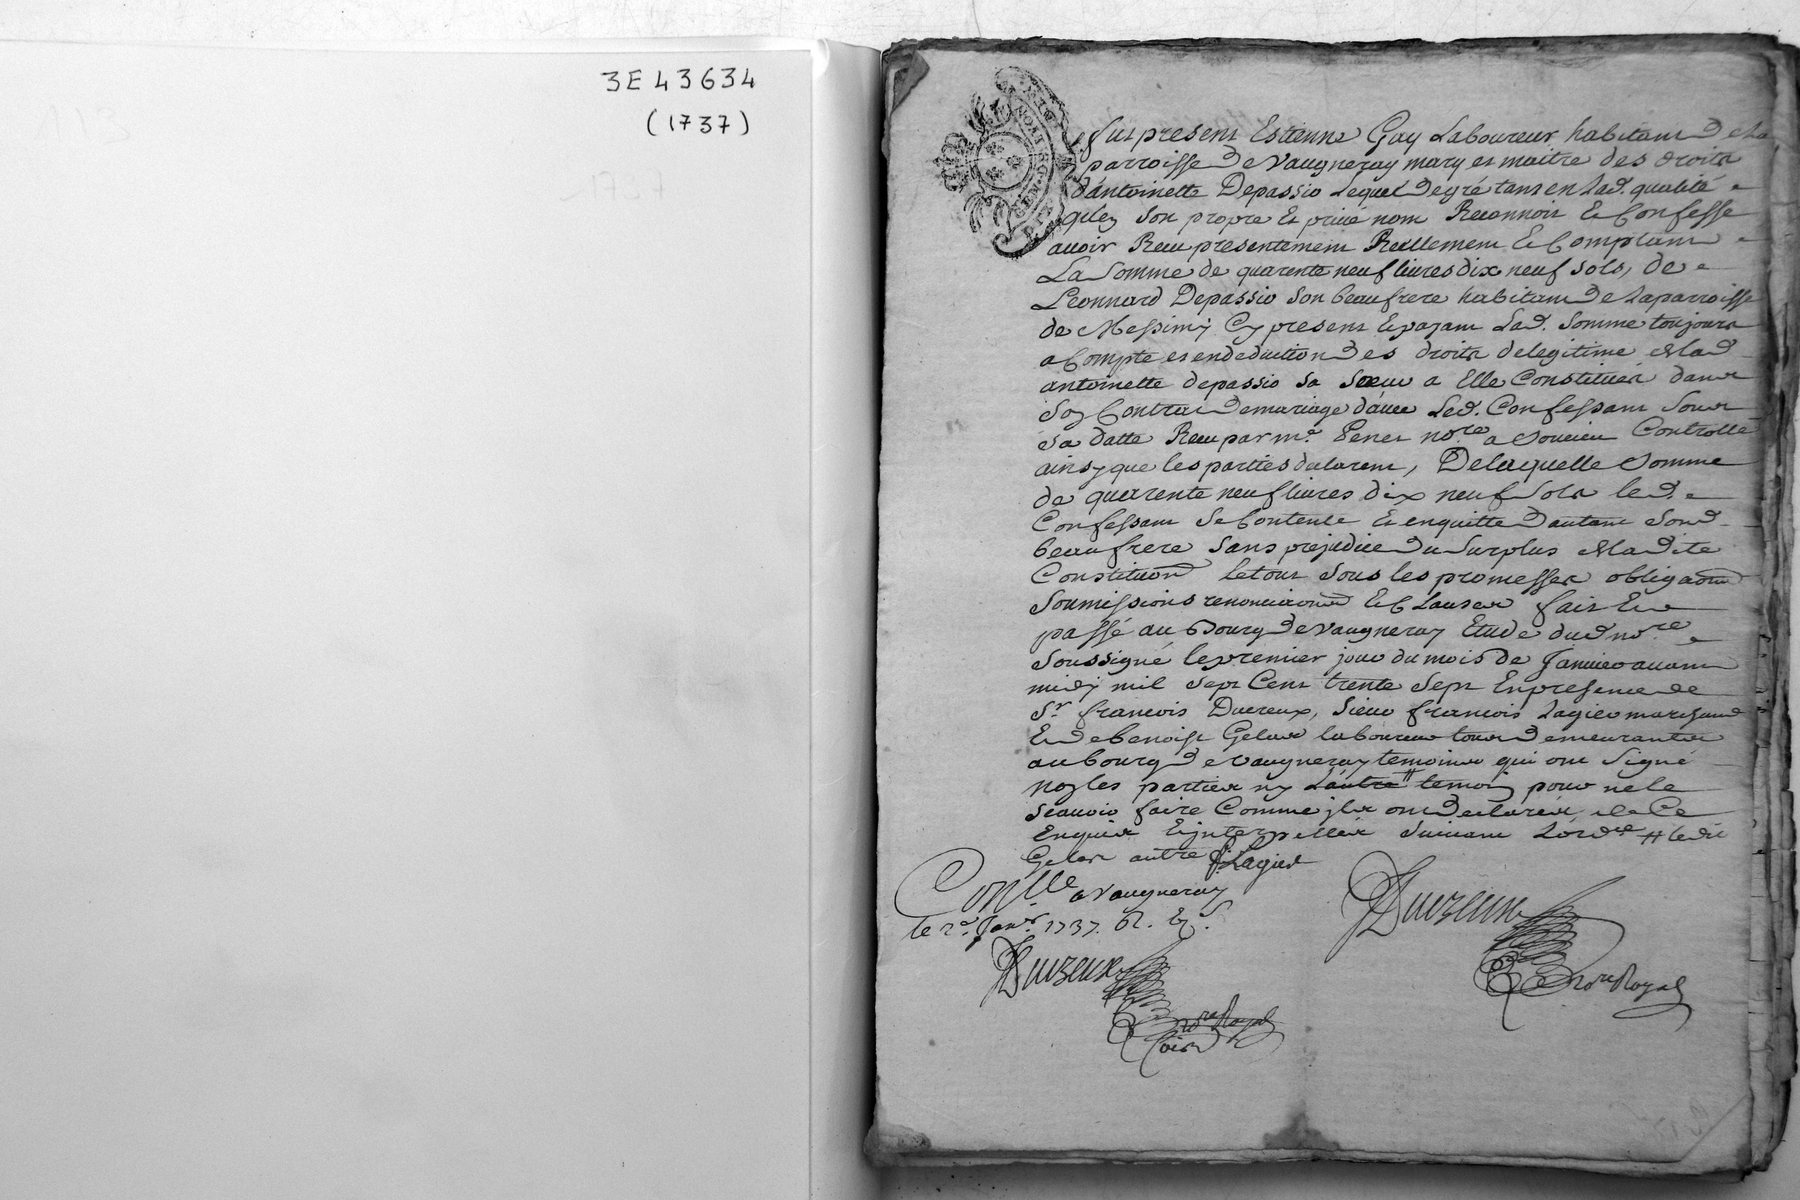 3E 43634
(1737)
fut present Estienne Gay Laboureur habitant de La
parroisse de Vaugneray mary et maitre des droits
d'antoinette Depassio Lequel de gré tant en lad. qualité
qu'en son propre et privé nom Reconnoit et Confesse
avoir Receu presentement Reellement et Comptant
La somme de quarente neuf livres dix neuf sols, de
Leonnard Depassio son beaufrere habitant de la parroisse
de Messimy Cy present et payant lad. somme toujours
a Compte et en deduction des droits de legitime de lad
antoinette depassio sa sœur a Elle Constitués dans
son Contrat de mariage d'avec led. Confessant sous
sa datte Receu par me. not.re a Soucieu Controllé
ainsy que les parties declarent, De laquelle Somme
de quarente neuf livres dix neuf sols led.
Confessant se Contente et en quitte d'autant sond
beaufrere sans prejudice du surplus de ladite
Constituon le tout sous les promesses obligaons
soumissions renonciaons et Clauses fait et
passé au Bourg de Vaugneray Etude dud no.re
soussigné le premier jour du mois de Janvier avant
midy mil sept Cent trente sept En presence de
Sr. francois Ducreux, sieur francois Lagier marchand
et de benoist Gelas laboureur tous demeurants
au bourg de vaugneray temoins qui ont signé
non les parties ny l'autre # temoin pour ne le
scavoir faire Comme ils ont declarés, de Ce
Enquis et interpellés suivant l'ord.ce # ledit
Gelas autre f. Lagier
Con.lle a Vaugneray
le 2e. Janv.r 1737.
Ducreux
no.re Royal
Ducreux
no.re Royal